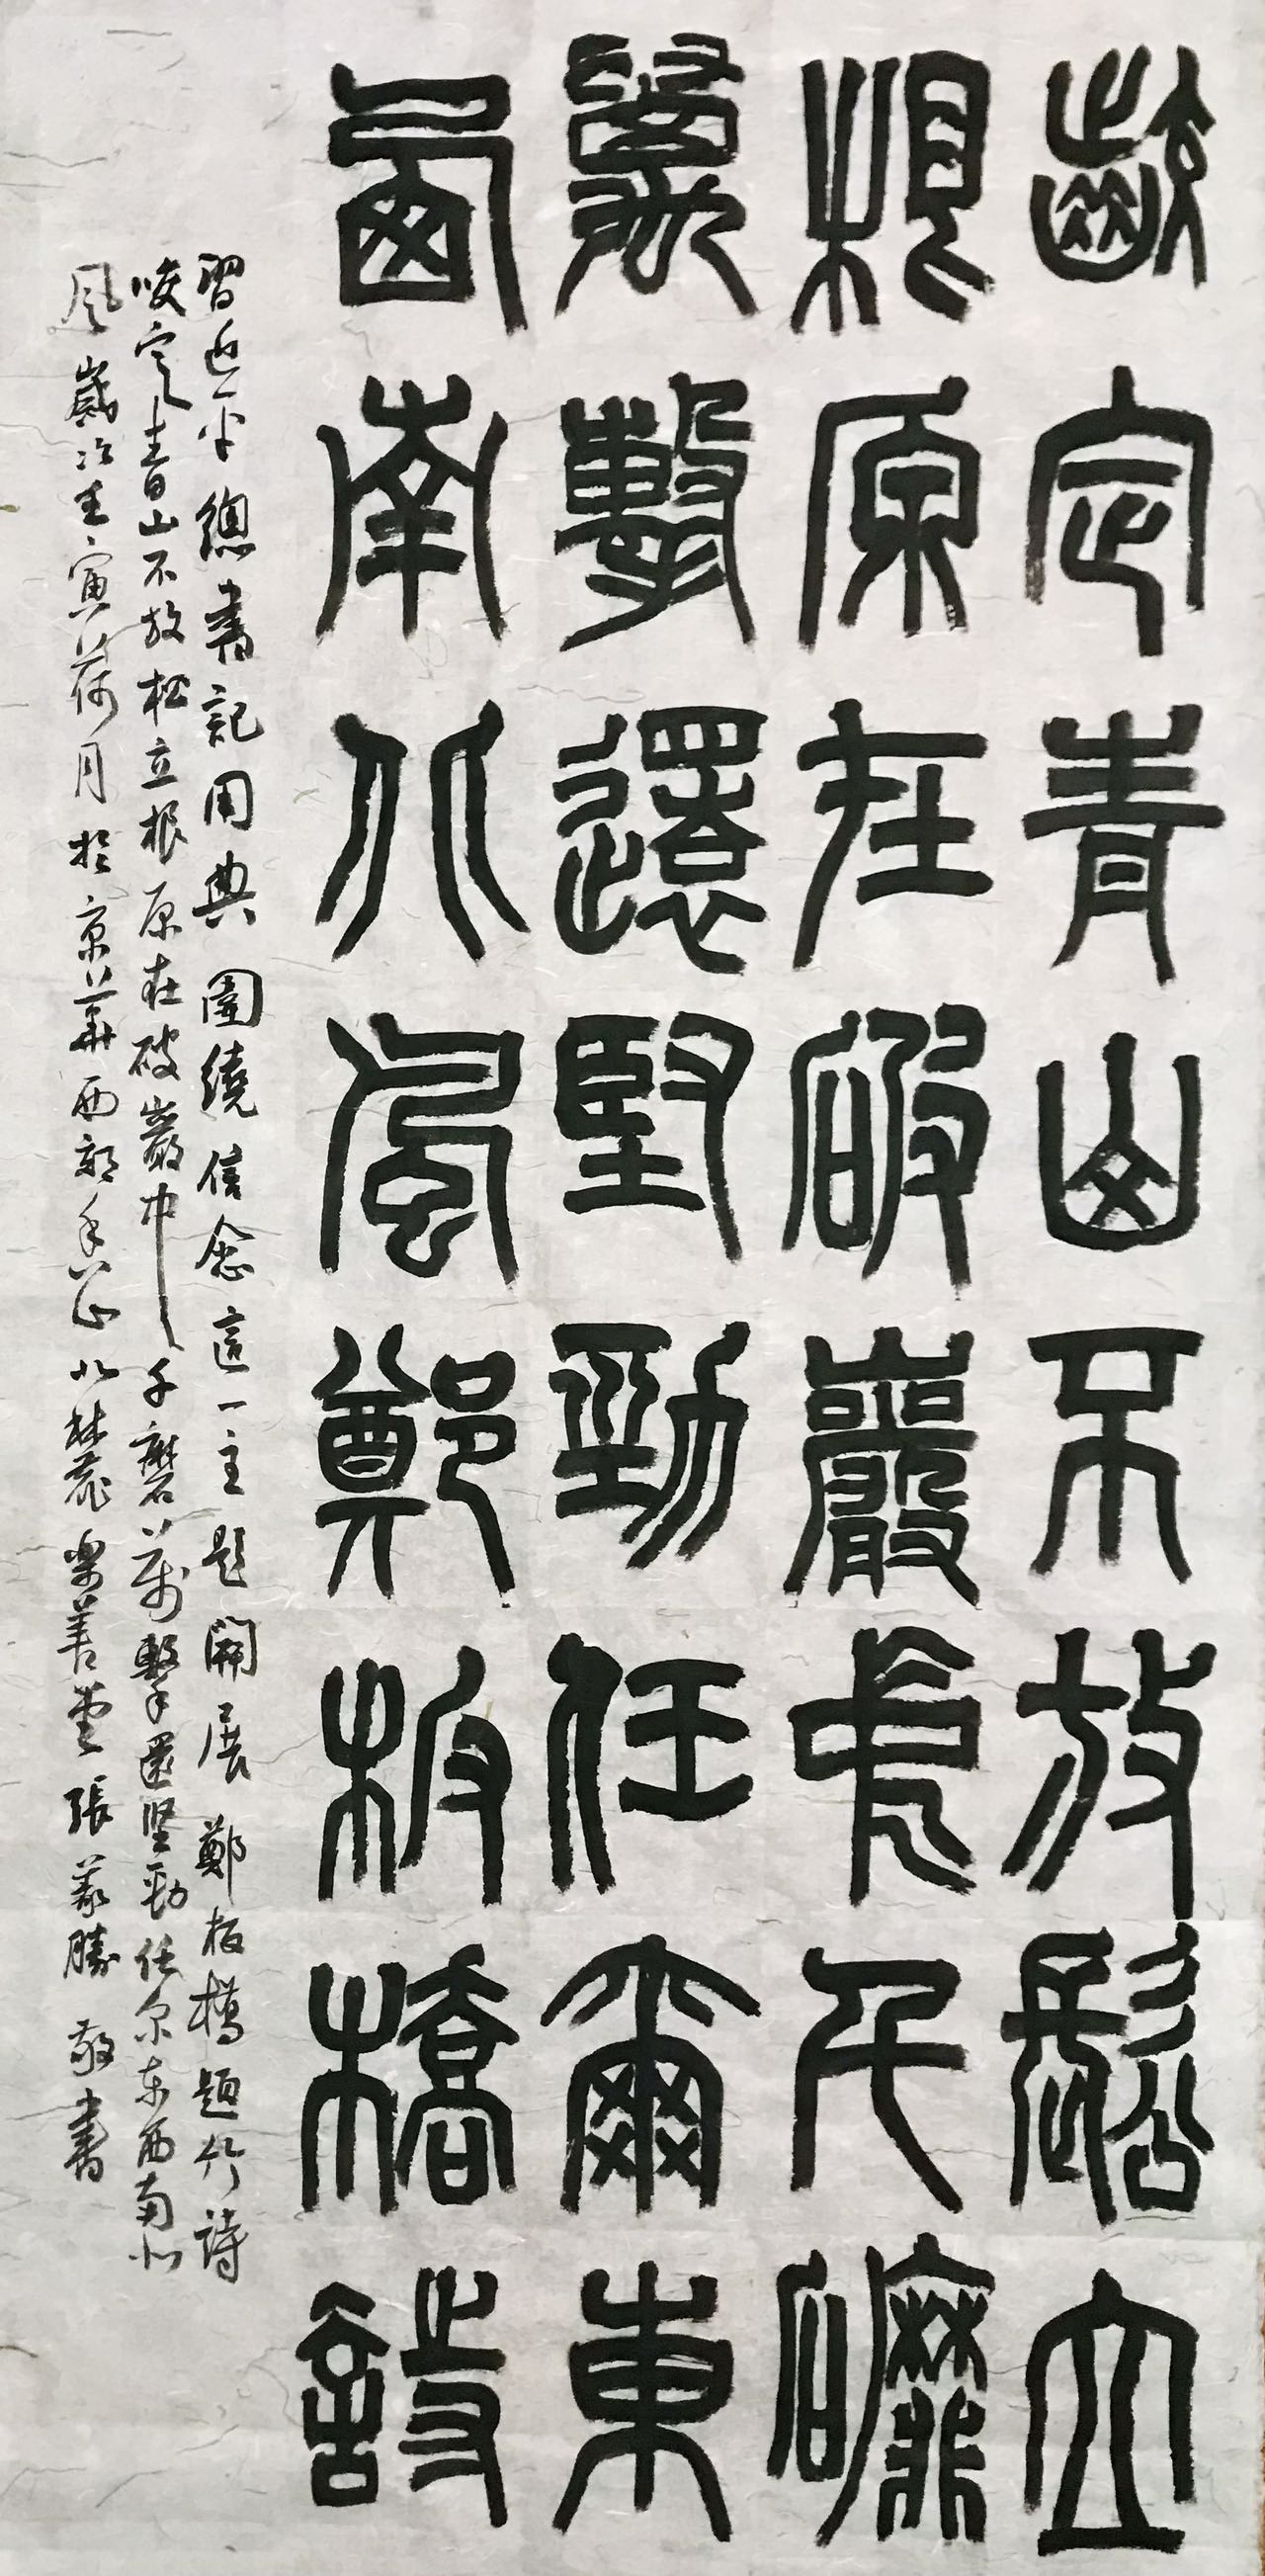 齩定青山不放鬆立
根原在破巖中千磨
萬擊還堅勁任爾東
西南北風鄭板橋詩
習近平總書記用典圍繞信念這一主題開展鄭板橋題竹詩
咬定青山不放松立根原在破巖中千磨萬擊還坚勁任尔东西南北
风歲次壬寅荷月於京華西郊香山北林麓樂善堂張義勝敬書